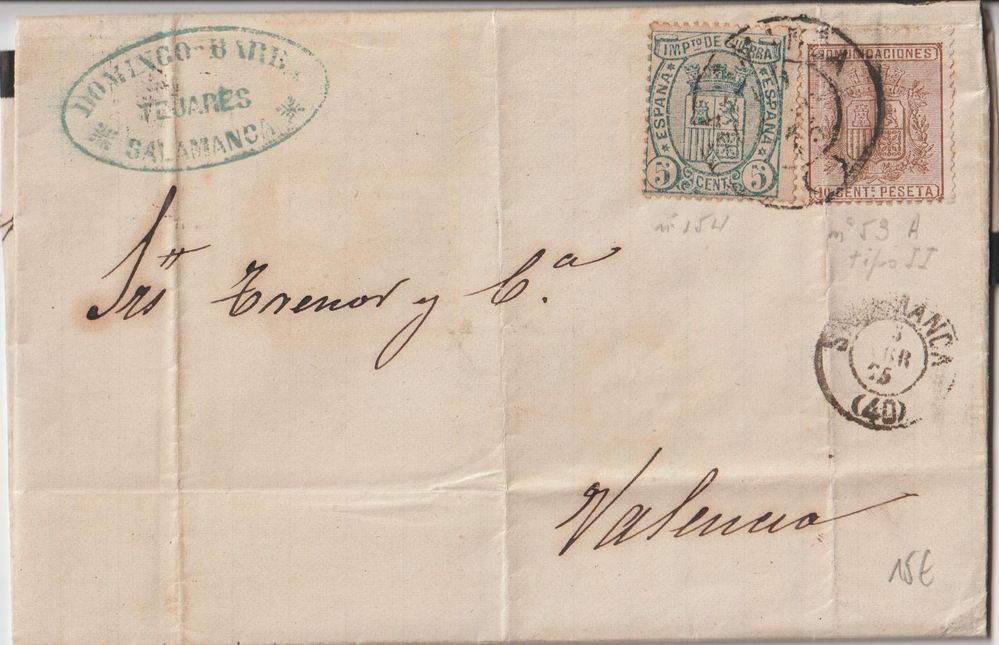 DOMINGO-BARBA
TEJARES
SALAMANCA
IMPTO DE GUERRA
ESPAÑA
ESPAÑA
5 CENT. 5
COMUNICACIONES
10 CENTS PESETA
nº 154
nº 53 A
tipo II
Srs Trenor y Cª
SALAMANCA
ABR
75
(40)
Valencia
15€